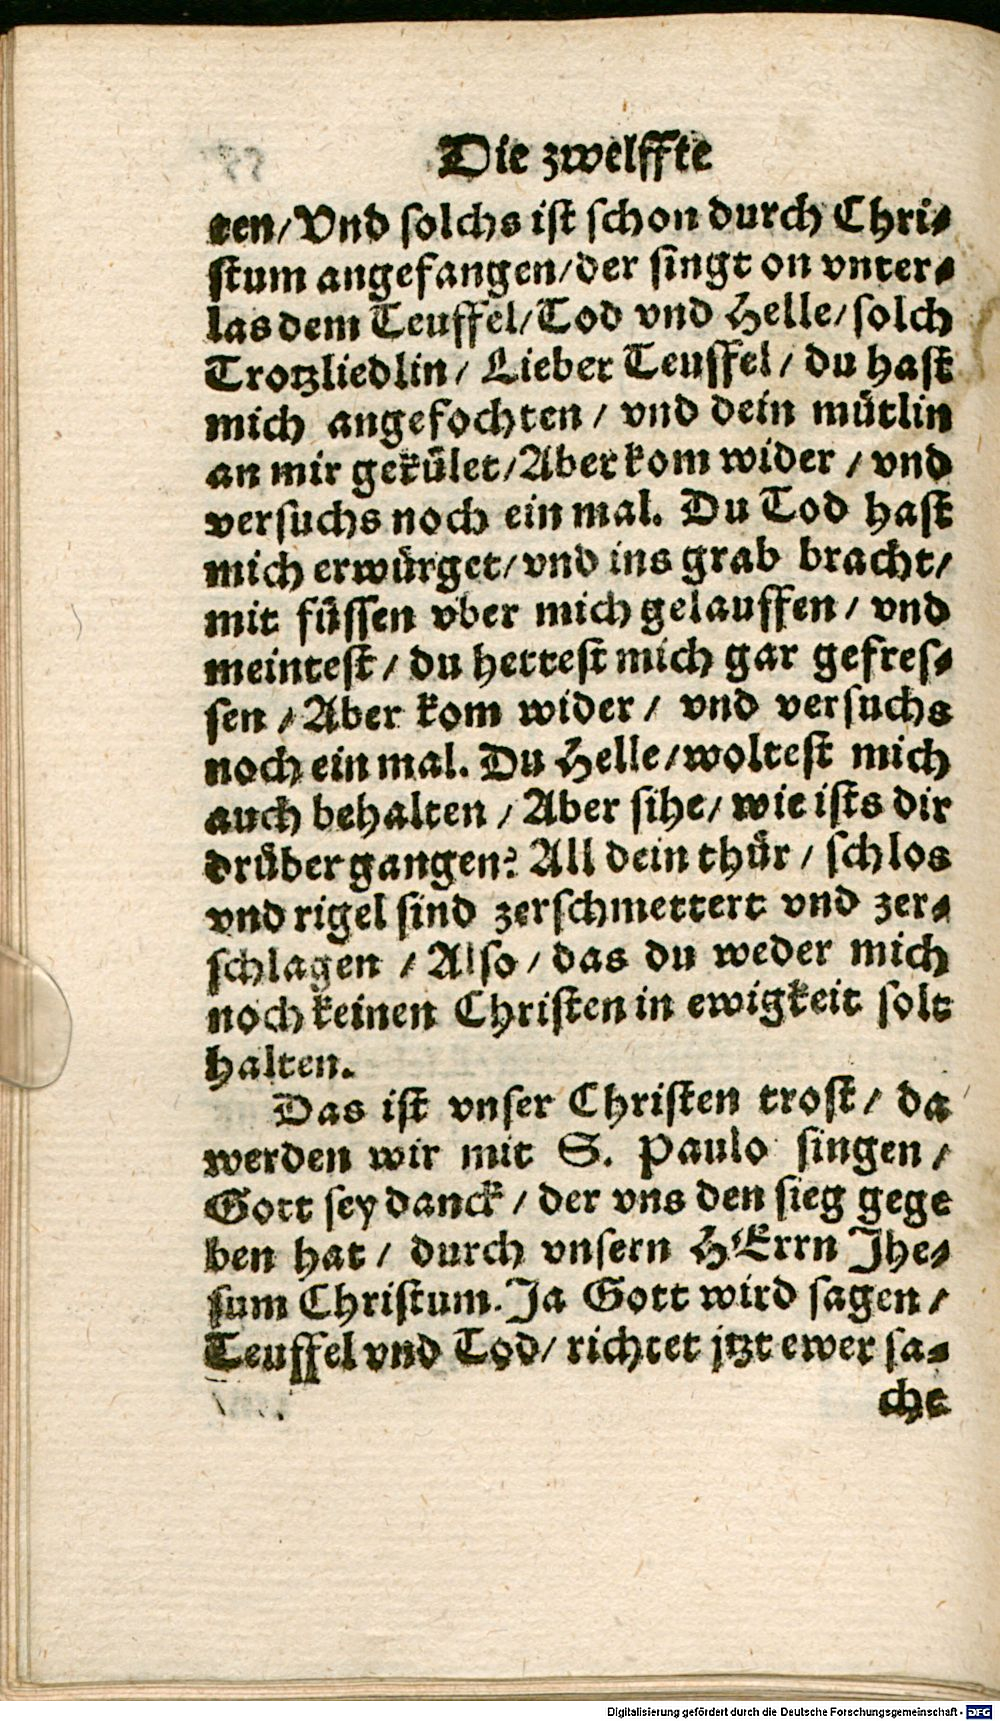 Die zwelffte
ten/Vnd solchs ist schon durch Chri-
stum angefangen/der singt on vnter-
las dem Teuffel/Tod vnd Helle/solch
Trotzliedlin/ Lieber Teuffel/ du hast
mich angefochten/ vnd dein mütlin
an mir gekület/Aber kom wider/ vnd
versuchs noch ein mal. Du Tod hast
mich erwürget/vnd ins grab bracht/
mit füssen vber mich gelauffen/ vnd
meintest/ du hettest mich gar gefres-
sen/ Aber kom wider/ vnd versuchs
noch ein mal. Du Helle/woltest mich
auch behalten/ Aber sihe/ wie ists dir
drüber gangen? All dein thür/ schlos
vnd rigel sind zerschmettert vnd zer-
schlagen/ Also/ das du weder mich
noch keinen Christen in ewigkeit solt
halten.
Das ist vnser Christen trost/ da
werden wir mit S. Paulo singen/
Gott sey danck/ der vns den sieg gege
ben hat/ durch vnsern HErrn Jhe-
sum Christum. Ja Gott wird sagen/
Teuffel vnd Tod/ richtet jtzt ewer sa-
che
Digitalisierung gefördert durch die Deutsche Forschungsgemeinschaft - DFG